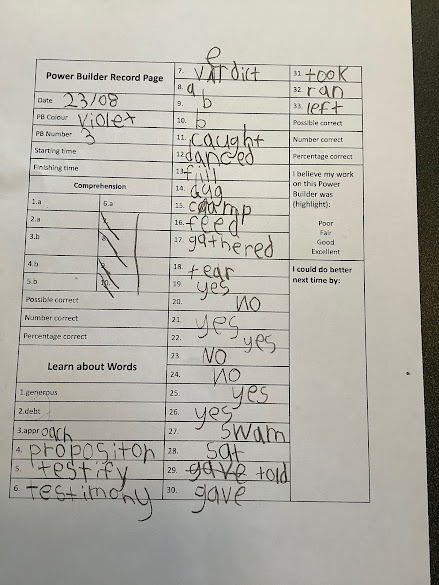 Power Builder Record Page
Date 23/08
PB Colour violet
PB Number 3
Starting time
Finishing time
Comprehension
1.a 6.a
2.a
3.b
4.b
5.b 10.
Possible correct
Number correct
Percentage correct
Learn about Words
1.generous
2.debt
3.approach
4. propositon
5. testify
6. testimony
7. verdict
8. a
9. b
10. b
11. caught
12. danced
13. fill
14.
15. camp
16. feed
17. gathered
18. tear
19. yes
20. no
21. yes
22. yes
23. NO
24. no
25. yes
26. yes
27. swam
28. sat
29. gave told
30. gave
31. took
32. ran
33. left
Possible correct
Number correct
Percentage correct
I believe my work
on this Power
Builder was
(highlight):
Poor
Fair
Good
Excellent
I could do better
next time by: